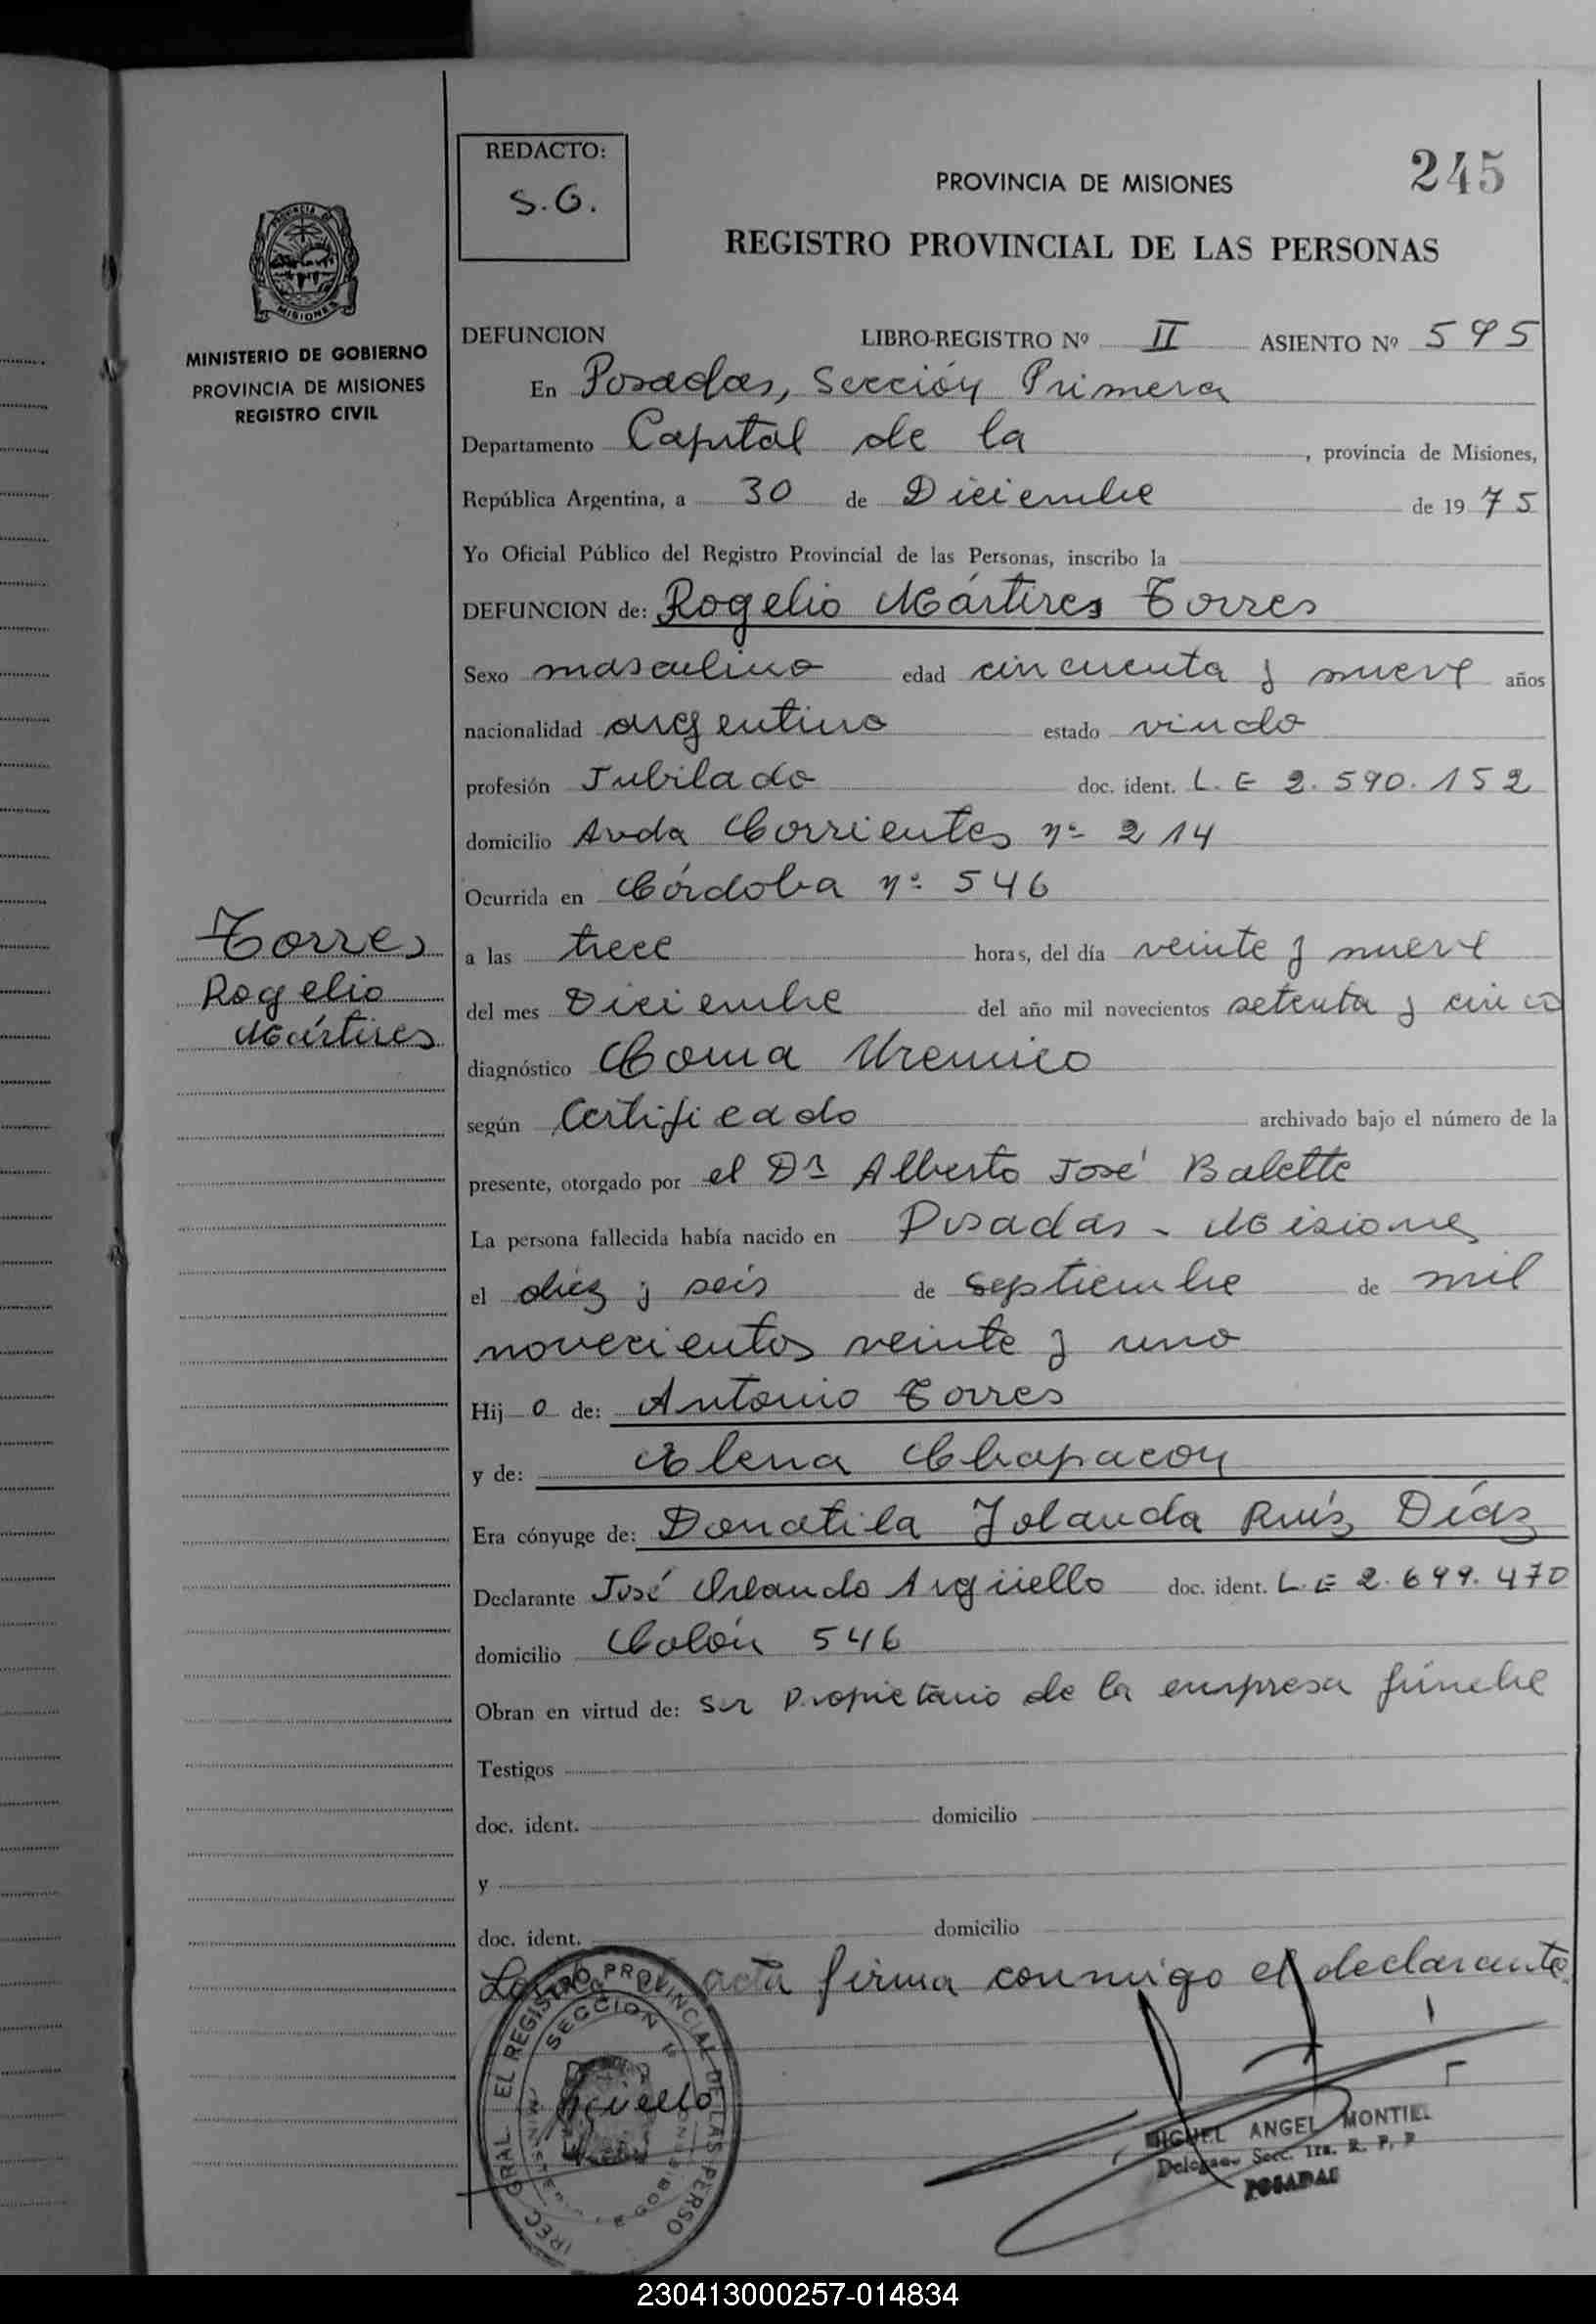 REDACTO:
S.G.
PROVINCIA DE MISIONES
245
REGISTRO PROVINCIAL DE LAS PERSONAS
MINISTERIO DE GOBIERNO
PROVINCIA DE MISIONES
REGISTRO CIVIL
DEFUNCION LIBRO-REGISTRO Nº II ASIENTO Nº 595
En Posadas, Sección Primera
Departamento Capital de la, provincia de Misiones,
República Argentina, a 30 de Diciembre de 1975
Yo Oficial Público del Registro Provincial de las Personas, inscribo la
DEFUNCION de: Rogelio Mártires Torres
Sexo masculino edad cincuenta y nueve años
nacionalidad argentino estado viudo
profesión Jubilado doc. ident. L.E 2.590.152
domicilio Avda Corrientes nº 214
Ocurrida en Córdoba nº 546
Torres
Rogelio
Mártires
a las trece horas, del día veinte y nueve
del mes Diciembre del año mil novecientos setenta y cinco
diagnóstico Coma Uremico
según Certificado archivado bajo el número de la
presente, otorgado por el Dr Alberto José Balette
La persona fallecida había nacido en Posadas - Misiones
el diez y seis de septiembre de mil
novecientos veinte y uno
Hijo de: Antonio Torres
y de: Elena Chapacoy
Era cónyuge de: Donatila Yolanda Ruíz Díaz
Declarante José Orlando Argüello doc. ident. L.E 2.699.470
domicilio Colón 546
Obran en virtud de: ser propietario de la empresa fúnebre
Testigos
doc. ident. domicilio
y
doc. ident. domicilio
acta firma conmigo el declarante.
REGISTRO PROVINCIAL DE LAS PERSO
SECCION 1ª
MIGUEL ANGEL MONTIEL
Secc. 1ra. R. P. P
POSADAS
230413000257-014834